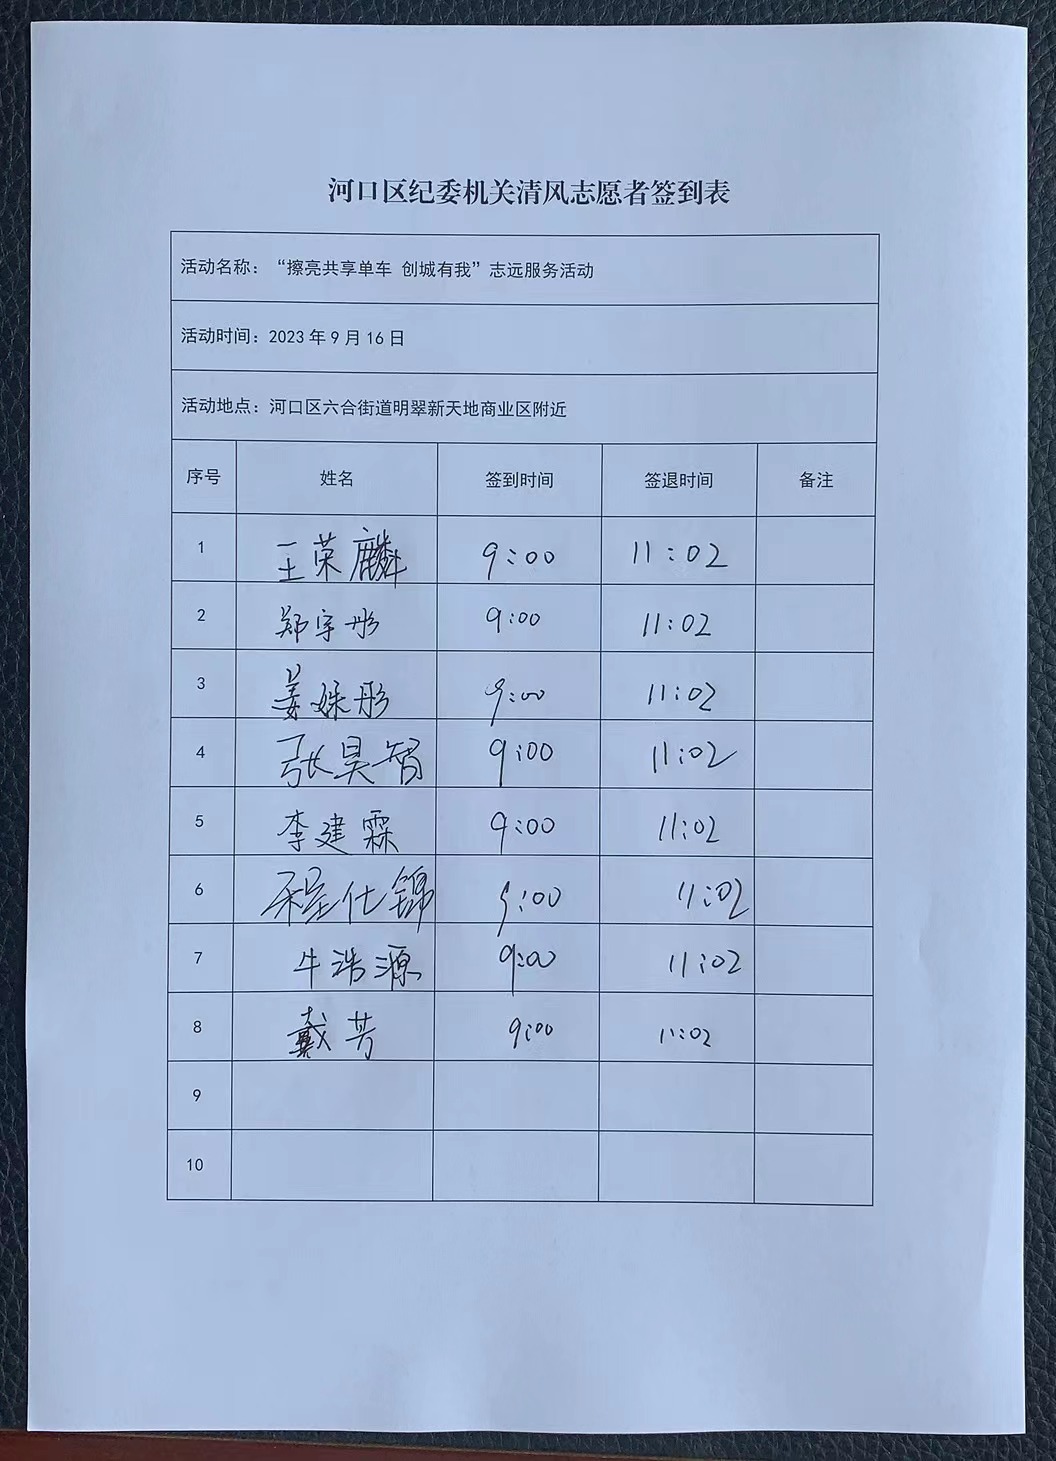 河口区纪委机关清风志愿者签到表
活动名称：“擦亮共享单车 创城有我”志远服务活动
活动时间：2023年9月16日
活动地点：河口区六合街道明翠新天地商业区附近
序号 姓名 签到时间 签退时间 备注
1 王荣麟 9:00 11:02
2 郑宇彤 9:00 11:02
3 姜姝彤 9:00 11:02
4 张昊智 9:00 11:02
5 李建霖 9:00 11:02
6 程仕锦 9:00 11:02
7 牛浩源 9:00 11:02
8 戴芳 9:00 11:02
9
10